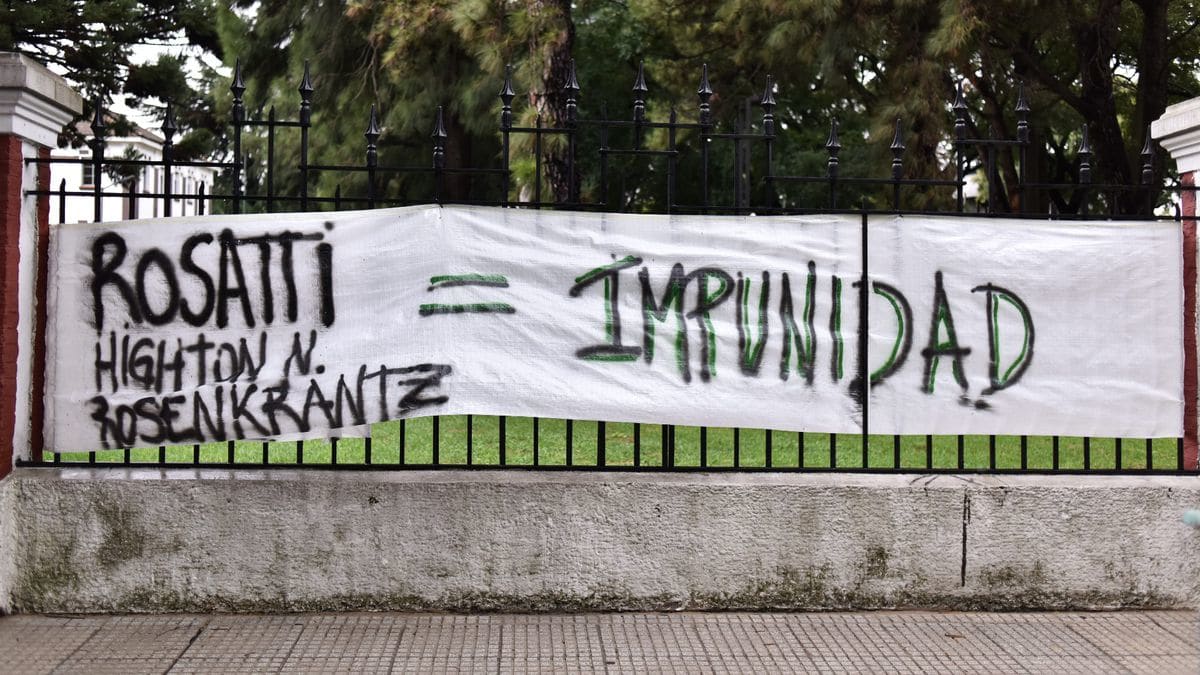 ROSATTi
HIGHTON N.
ROSENKRANTZ
= IMPUNIDAD